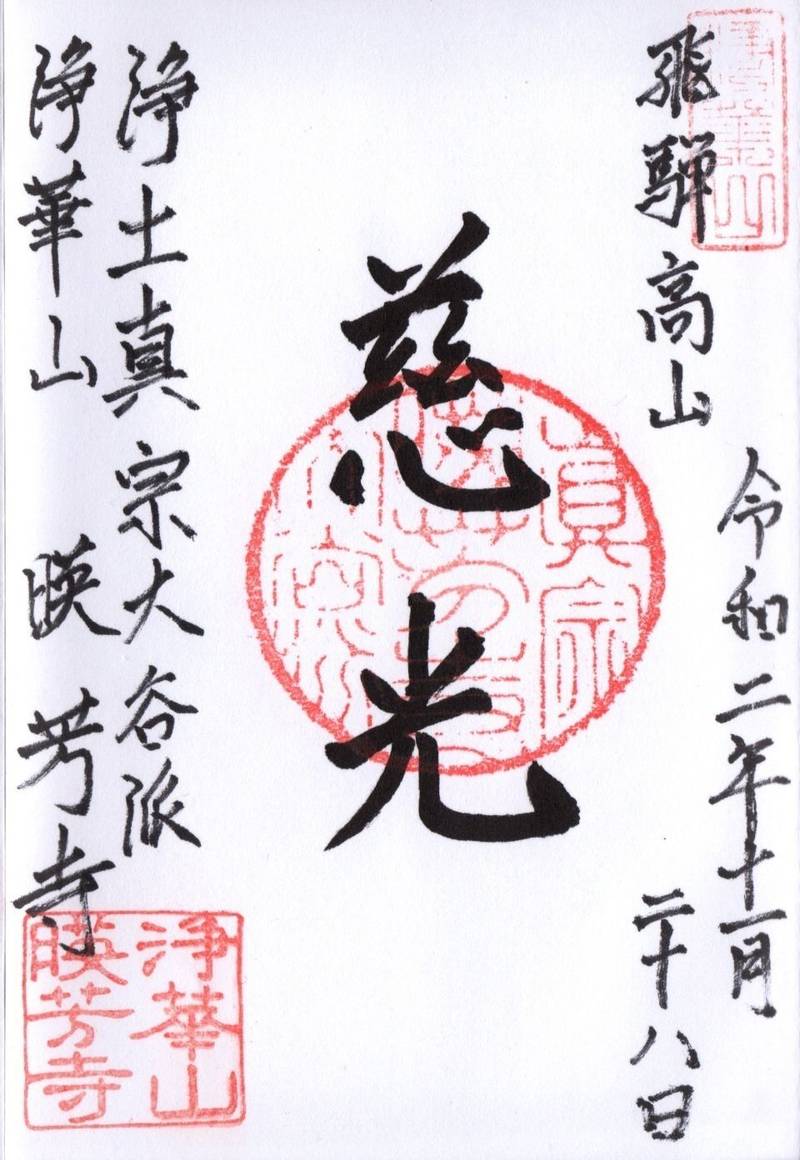 飛騨高山
令和二年十一月
二十八日
慈光
浄土真宗大谷派
浄華山 暎芳寺
浄華山
真宗
浄華山
暎芳寺